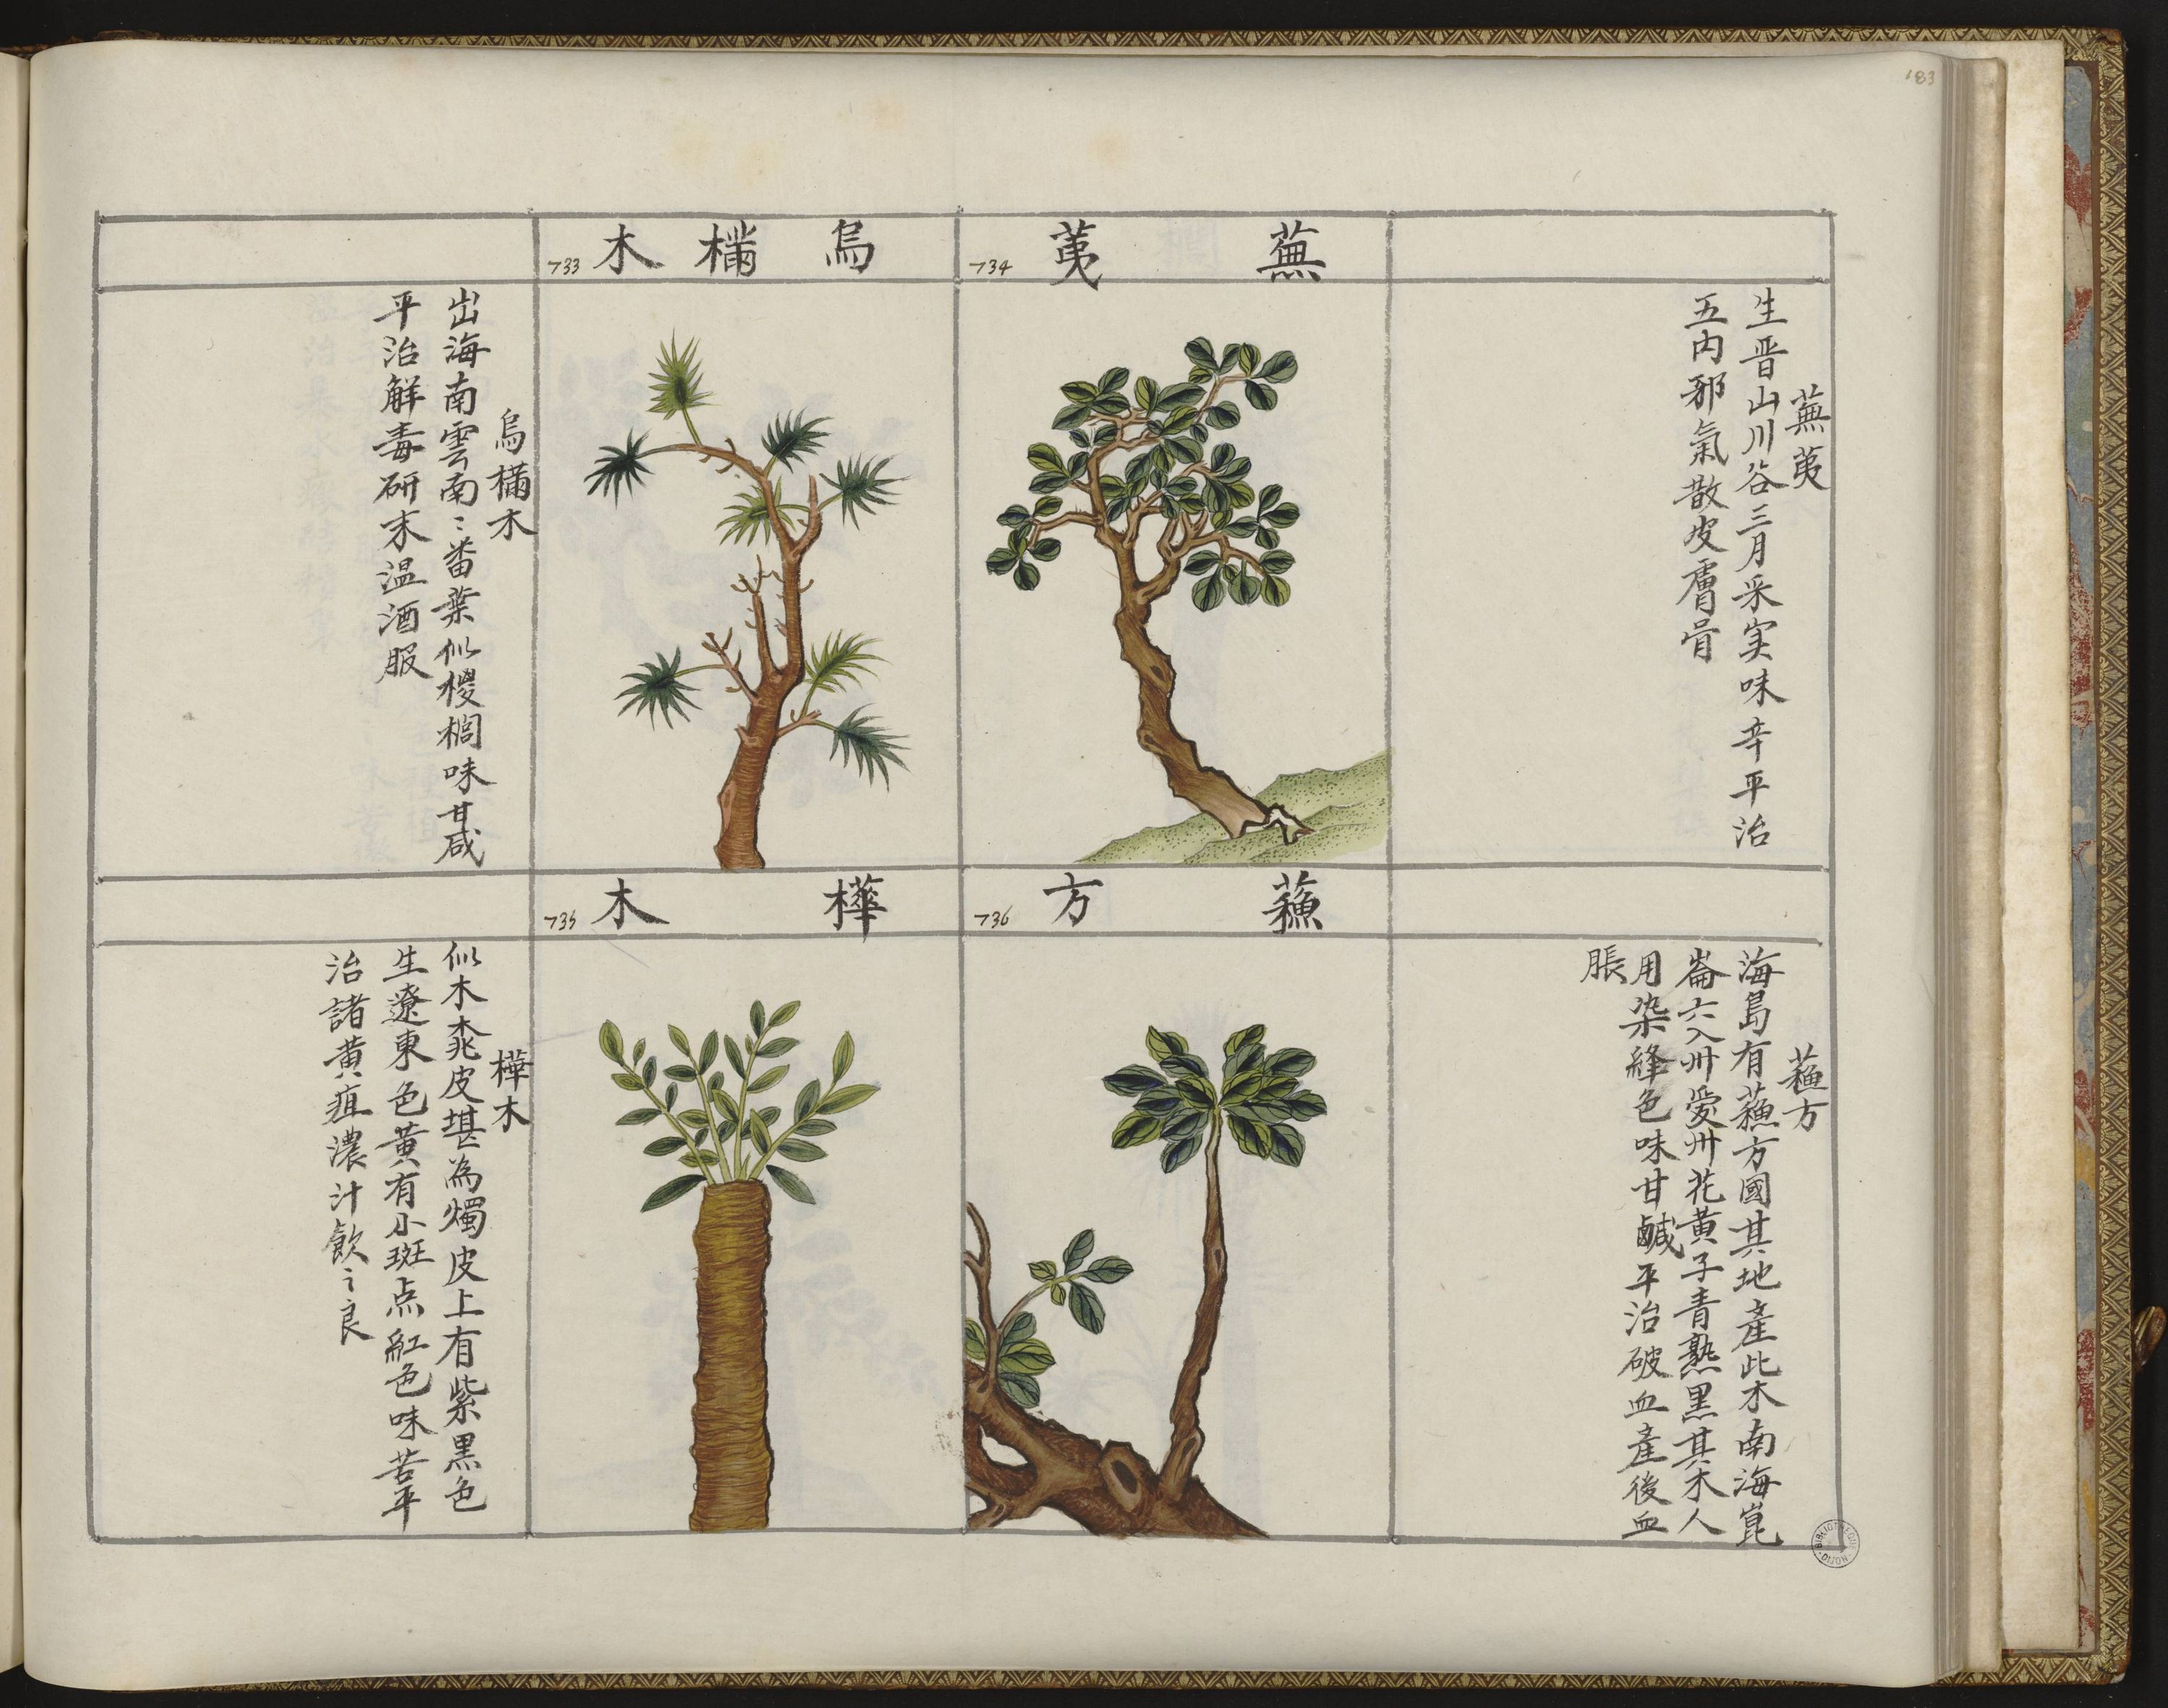 183
蕪荑
734
烏樠木
733
蕪荑
生晋山川谷三月采实味辛平治
五内邪氣散皮膚骨
烏樠木
出海南雲南〻番葉似椶櫚味甘咸
平治解毒研末温酒服
蘓方
736
樺木
735
蘓方
海島有蘓方國其地產此木南海崑
崙六入卅愛卅花黄子青熟黑其木人
用染絳色味甘鹹平治破血產後血
脹
樺木
似木桃皮堪為燭皮上有紫黑色
生遼東色黄有小斑点紅色味苦平
治諸黄疸濃汁飲〻良
BIBLIOTHEQUE DIJON